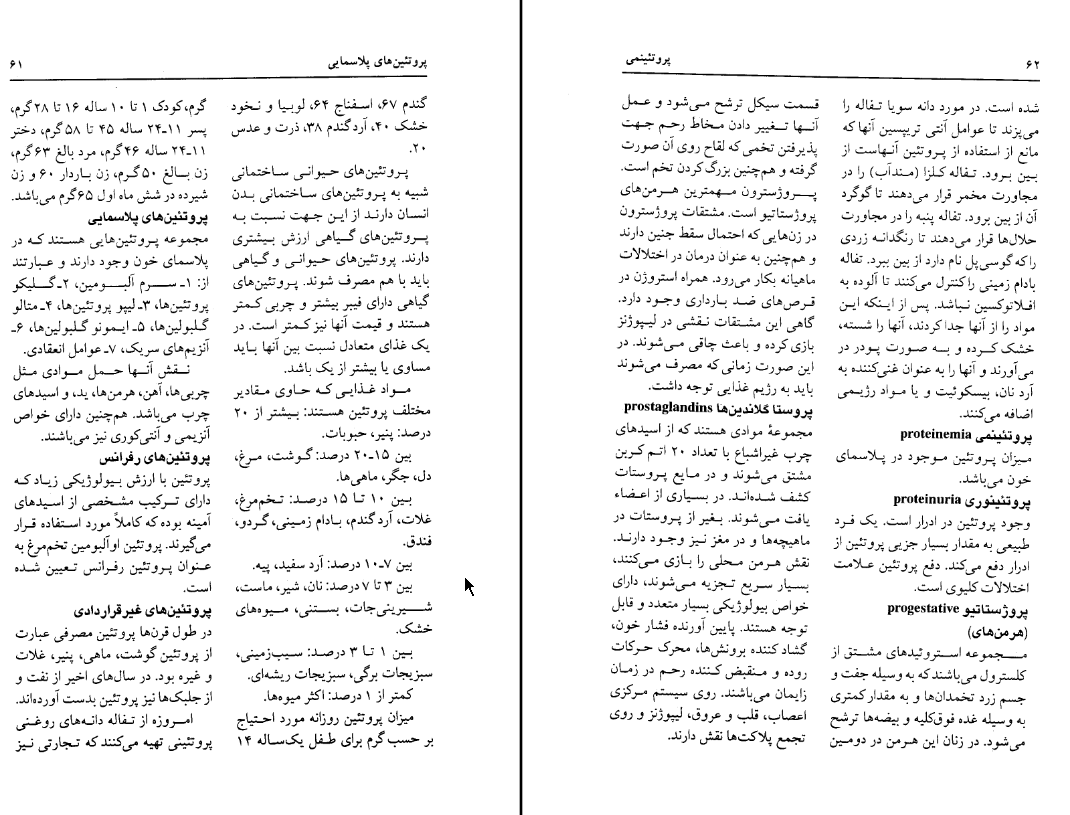 پروتئین‌های پلاسمایی
۶۱
گندم ۶۷، اسفناج ۶۴، لوبیا و نخود
خشک ۴۰، آردگندم ۳۸، ذرت و عدس
۲۰.
پروتئین‌های حیوانی ساختمانی
شبیه به پروتئین‌های ساختمانی بدن
انسان دارند از این جهت نسبت به
پروتئین‌های گیاهی ارزش بیشتری
دارند. پروتئین‌های حیوانی و گیاهی
باید با هم مصرف شوند. پروتئین‌های
گیاهی دارای فیبر بیشتر و چربی کمتر
هستند و قیمت آنها نیز کمتر است. در
یک غذای متعادل نسبت بین آنها باید
مساوی یا بیشتر از یک باشد.
مواد غذایی که حاوی مقادیر
مختلف پروتئین هستند: بیشتر از ۲۰
درصد: پنیر، حبوبات.
بین ۱۵ـ۲۰ درصد: گوشت، مرغ،
دل، جگر، ماهی‌ها.
بین ۱۰ تا ۱۵ درصد: تخم‌مرغ،
غلات، آردگندم، بادام زمینی، گردو،
فندق.
بین ۷ـ۱۰ درصد: آرد سفید، پیه.
بین ۳ تا ۷ درصد: نان، شیر، ماست،
شیرینی‌جات، بستنی، میوه‌های
خشک.
بین ۱ تا ۳ درصد: سیب‌زمینی،
سبزیجات برگی، سبزیجات ریشه‌ای.
کمتر از ۱ درصد: اکثر میوه‌ها.
میزان پروتئین روزانه مورد احتیاج
بر حسب گرم برای طفل یک‌ساله ۱۴
گرم، کودک ۱ تا ۱۰ ساله ۱۶ تا ۲۸ گرم،
پسر ۱۱ـ۲۴ ساله ۴۵ تا ۵۸ گرم، دختر
۱۱ـ۲۴ ساله ۴۶ گرم، مرد بالغ ۶۳ گرم،
زن بالغ ۵۰ گرم، زن باردار ۶۰ و زن
شیرده در شش ماه اول ۶۵ گرم می‌باشد.
پروتئین‌های پلاسمایی
مجموعه پروتئین‌هایی هستند که در
پلاسمای خون وجود دارند و عبارتند
از: ۱ـ سرم آلبومین، ۲ـ گلیکو
پروتئین‌ها، ۳ـ لیپو پروتئین‌ها، ۴ـ متالو
گلبولین‌ها، ۵ـ ایمونو گلبولین‌ها، ۶ـ
آنزیم‌های سریک، ۷ـ عوامل انعقادی.
نقش آنها حمل موادی مثل
چربی‌ها، آهن، هرمن‌ها، ید، و اسیدهای
چرب می‌باشد. هم‌چنین دارای خواص
آنزیمی و آنتی‌کوری نیز می‌باشند.
پروتئین‌های رفرانس
پروتئین با ارزش بیولوژیکی زیاد که
دارای ترکیب مشخصی از اسیدهای
آمینه بوده که کاملاً مورد استفاده قرار
می‌گیرند. پروتئین اوآلبومین تخم‌مرغ به
عنوان پروتئین رفرانس تعیین شده
است.
پروتئین‌های غیرقراردادی
در طول قرن‌ها پروتئین مصرفی عبارت
از پروتئین گوشت، ماهی، پنیر، غلات
و غیره بود. در سال‌های اخیر از نفت و
از جلبک‌ها نیز پروتئین بدست آورده‌اند.
امروزه از تفاله دانه‌های روغنی
پروتئینی تهیه می‌کنند که تجارتی نیز
۶۲
پروتئینمی
شده است. در مورد دانه سویا تفاله را
می‌پزند تا عوامل آنتی تریپسین آنها که
مانع از استفاده از پروتئین آنهاست از
بین برود. تفاله کلزا (منداَب) را در
مجاورت مخمر قرار می‌دهند تا گوگرد
آن از بین برود. تفاله پنبه را در مجاورت
حلال‌ها قرار می‌دهند تا رنگدانه زردی
را که گوسی‌پل نام دارد از بین ببرد. تفاله
بادام زمینی را کنترل می‌کنند تا آلوده به
افلاتوکسین نباشد. پس از اینکه این
مواد را از آنها جدا کردند، آنها را شسته،
خشک کرده و به صورت پودر در
می‌آورند و آنها را به عنوان غنی‌کننده به
آرد نان، بیسکوئیت و یا مواد رژیمی
اضافه می‌کنند.
پروتئینمی proteinemia
میزان پروتئین موجود در پلاسمای
خون می‌باشد.
پروتئینوری proteinuria
وجود پروتئین در ادرار است. یک فرد
طبیعی به مقدار بسیار جزیی پروتئین از
ادرار دفع می‌کند. دفع پروتئین علامت
اختلالات کلیوی است.
پروژستاتیو progestative
(هرمن‌های)
مجموعه استروئیدهای مشتق از
کلسترول می‌باشند که به وسیله جفت و
جسم زرد تخمدان‌ها و به مقدار کمتری
به وسیله غده فوق‌کلیه و بیضه‌ها ترشح
می‌شود. در زنان این هرمن در دومین
قسمت سیکل ترشح می‌شود و عمل
آنها تغییر دادن مخاط رحم جهت
پذیرفتن تخمی که لقاح روی آن صورت
گرفته و هم‌چنین بزرگ کردن تخم است.
پروژسترون مهمترین هرمن‌های
پروژستاتیو است. مشتقات پروژسترون
در زن‌هایی که احتمال سقط جنین دارند
و هم‌چنین به عنوان درمان در اختلالات
ماهیانه بکار می‌رود. همراه استروژن در
قرص‌های ضد بارداری وجود دارد.
گاهی این مشتقات نقشی در لیپوژنز
بازی کرده و باعث چاقی می‌شوند. در
این صورت زمانی که مصرف می‌شوند
باید به رژیم غذایی توجه داشت.
پروستا گلاندین‌ها prostaglandins
مجموعهٔ موادی هستند که از اسیدهای
چرب غیراشباع با تعداد ۲۰ اتم کربن
مشتق می‌شوند و در مایع پروستات
کشف شده‌اند. در بسیاری از اعضاء
یافت می‌شوند. بغیر از پروستات در
ماهیچه‌ها و در مغز نیز وجود دارند.
نقش هرمن محلی را بازی می‌کنند،
بسیار سریع تجزیه می‌شوند، دارای
خواص بیولوژیکی بسیار متعدد و قابل
توجه هستند. پایین آورنده فشار خون،
گشاد کننده برونش‌ها، محرک حرکات
روده و منقبض کننده رحم در زمان
زایمان می‌باشند. روی سیستم مرکزی
اعصاب، قلب و عروق، لیپوژنز و روی
تجمع پلاکت‌ها نقش دارند.